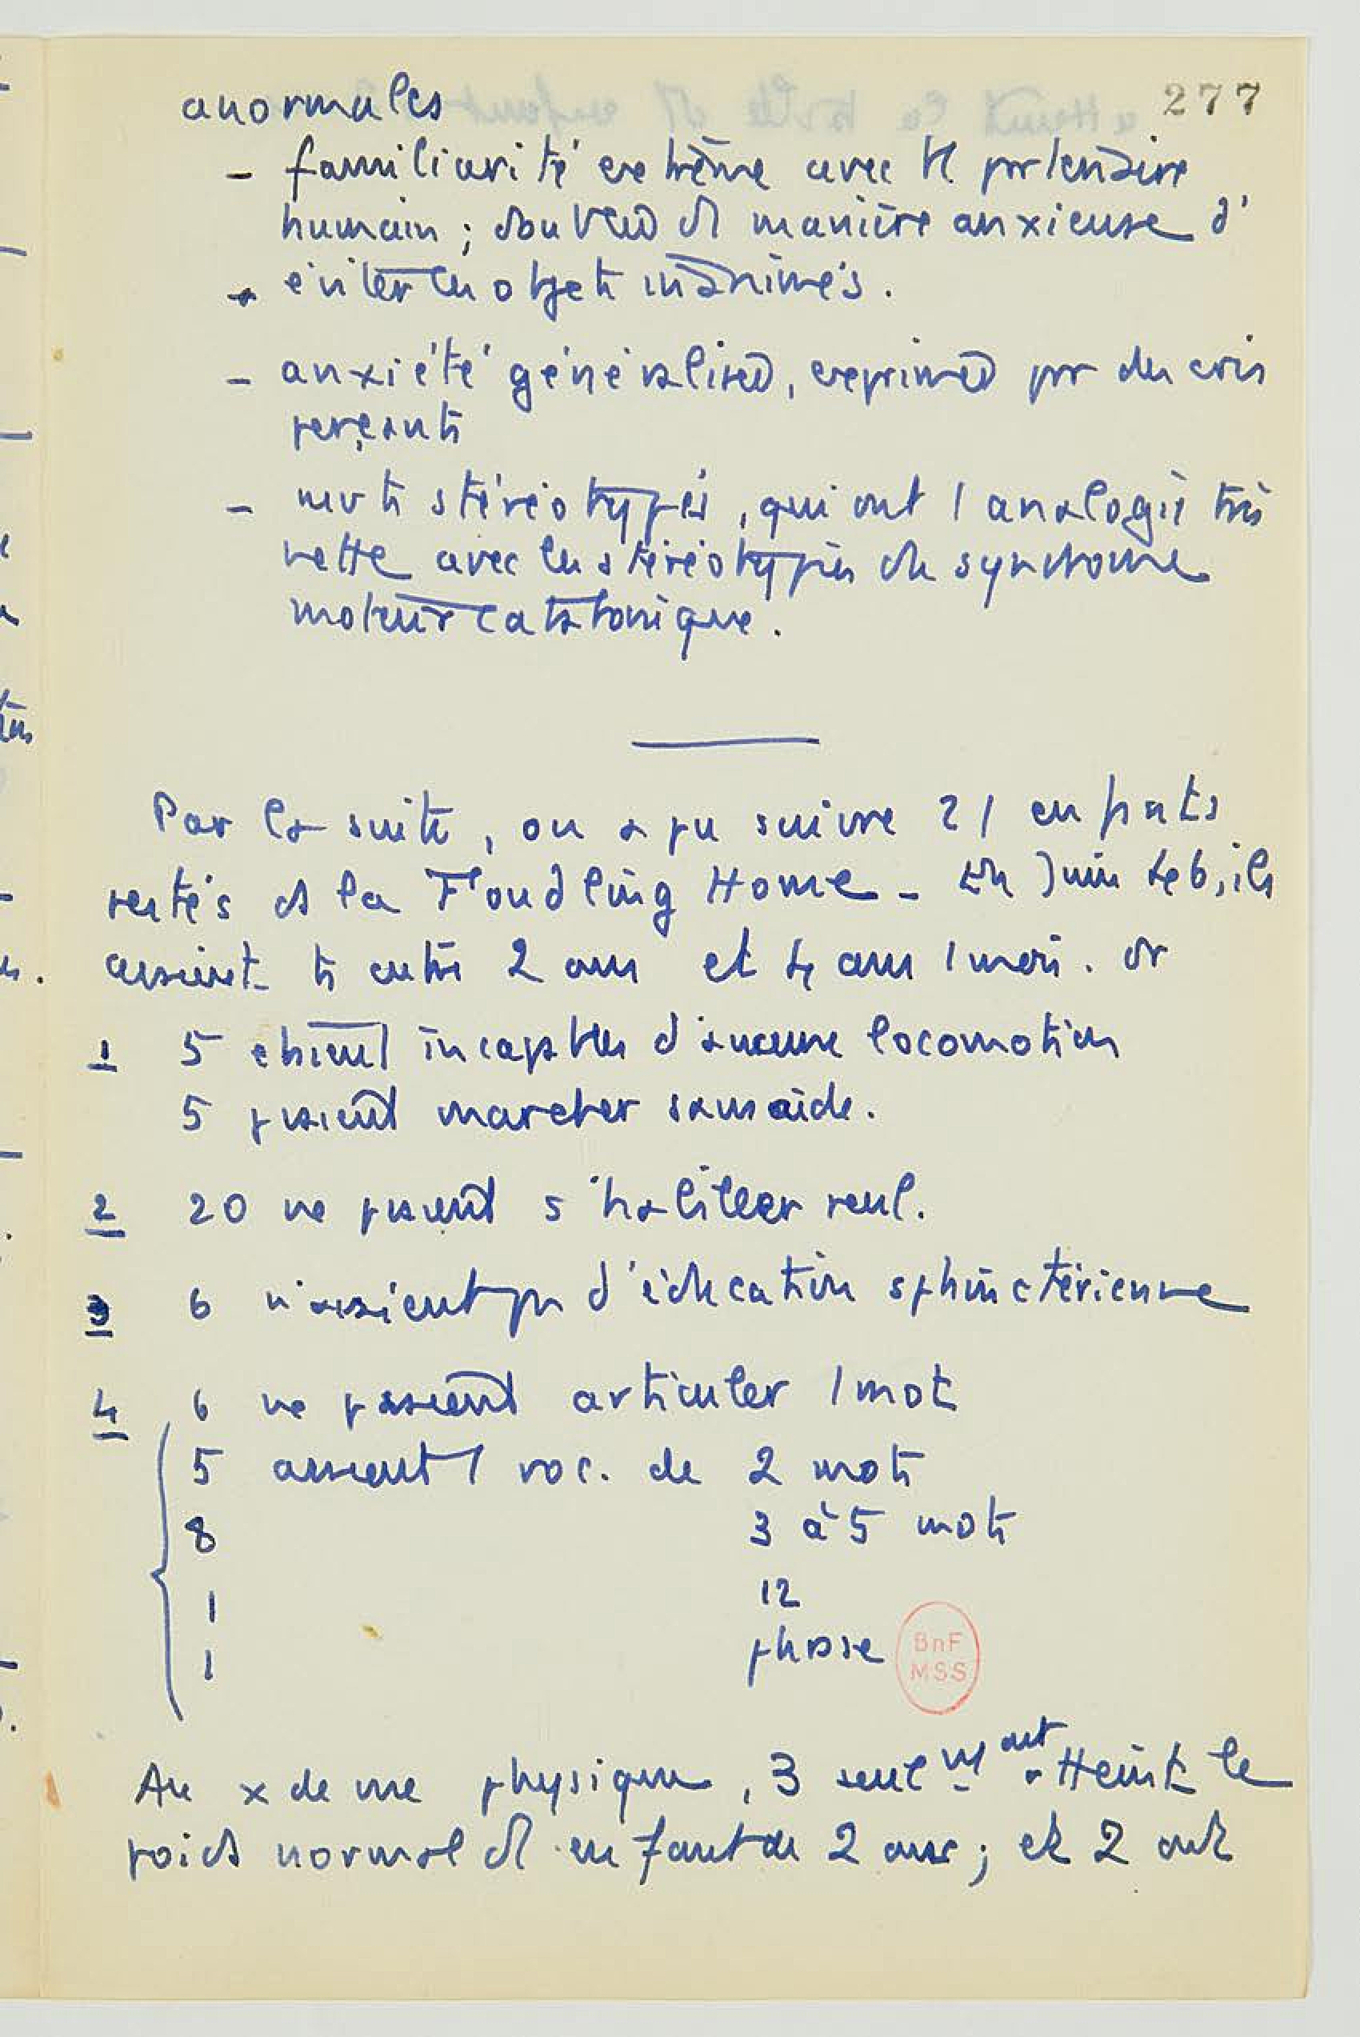 277
anormales
- familiarité extrême avec tt partenaire
humain ; souvent d1 manière anxieuse d'
éviter les objets inanimés.
- anxiété généralisée, exprimée par des cris
perçants
- mvts stéréotypés, qui ont 1 analogie très
nette avec les stéréotypies du syndrome
moteur catatonique.
Par la suite, on a pu suivre 21 enfants
restés à la Foundling Home - En Juin 46, ils
avaient entre 2 ans et 4 ans 1 mois. Or
1 5 étaient incapables d'aucune locomotion
5 pvaient marcher sans aide.
2 20 ne pvaient s'habiller seul.
3 6 n'avaient pas d'éducation sphinctérienne
4 6 ne pvaient articuler 1 mot
5 avaient 1 voc. de 2 mots
8 3 à 5 mots
1 12
1 phrase
BnF
MSS
Au x de vue physique, 3 seulmt ont atteint le
poids normal d1 enfant de 2 ans ; et 2 ont